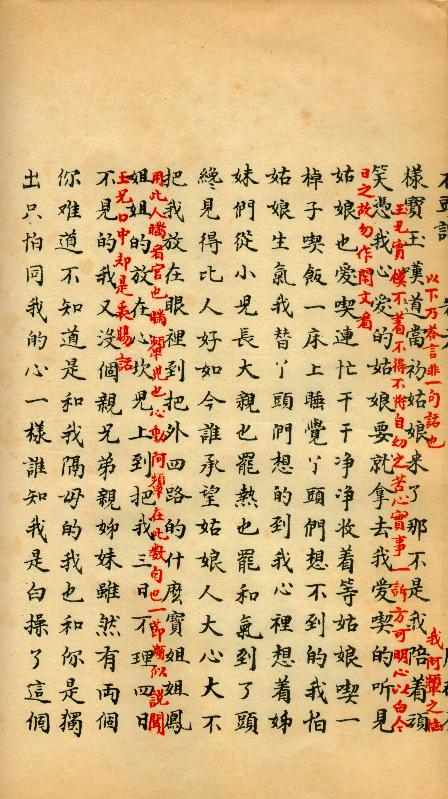 以下乃荅言非一句話也
樣寶玉嘆道當初姑娘來了那不是我陪着頑
我阿顰之惱
玉兄實摸不着不得不將自幼之苦心實事一訴方可明心以白今
笑憑我心愛的姑娘要就拿去我愛喫的听見
日之故勿作閒文看
姑娘也愛喫連忙干干净净收着等姑娘喫一
棹子喫飯一床上睡覺丫頭們想不到的我怕
姑娘生氣我替丫頭們想的到我心裡想着姊
妹們從小兒長大親也罷熱也罷和氣到了頭
纔見得比人好如今誰承望姑娘人大心大不
把我放在眼裡到把外四路的什麽寶姐姐鳳
用此人瞞看官也瞞顰兒也心動阿顰在此数句也一節頗似說閒
姐姐的放在心坎兒上到把我三日不理四日
玉兄口中却是衷腸話
不見的我又没個親兄弟親姊妹雖然有両個
你难道不知道是和我隔母的我也和你是獨
出只怕同我的心一樣誰知我是白操了這個